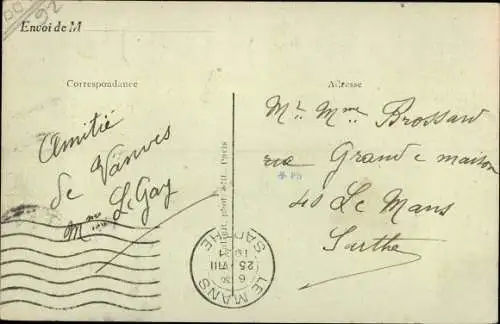 92
Envoi de M
Correspondance
Adresse
Amitié
de Vanves
Mme LeGay
Mr. Mme Brossard
rue Grande maison
40 Le Mans
Sarthe
phot. édit. Paris
LE MANS
SARTHE
25 VIII